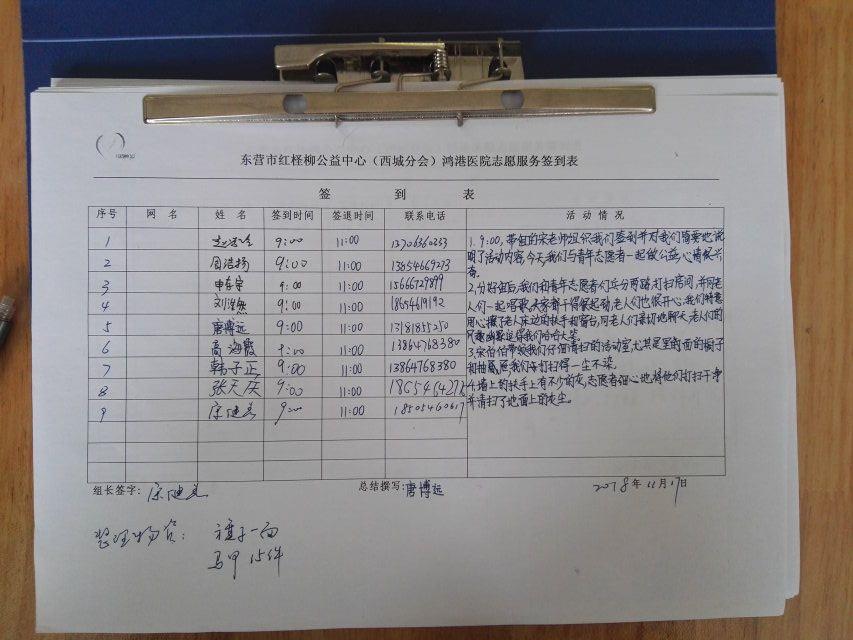 东营市红柽柳公益中心（西城分会）鸿港医院志愿服务签到表
签 到 表
序号 网 名 姓 名 签到时间 签退时间 联系电话 活 动 情 况
1 9:00 11:00 13706360253
2 周浩扬 9:00 11:00 13654669273
3 申东宇 9:00 11:00 15666729899
4 刘浩然 9:00 11:00 18654619192
5 唐博远 9:00 11:00 13181835250
6 高海霞 9:00 11:00 13864768380
7 韩子正 9:00 11:00 13864768380
8 张天庆 9:00 11:00
9 宋建美 9:00 11:00 18505460617
1. 9:00,带组的宋老师组织我们签到并对我们简要地说
明了活动内容,今天,我们与青年志愿者一起做公益,心情很兴
奋。
2.分好组后,我们和青年志愿者们兵分两路,打扫房间,并同老
人们一起唱歌,大家都干得很起劲,老人们也很开心,我们特意
用心擦了老人床边的扶手和窗台,同老人们亲切地聊天,老人们的
逗得我们哈哈大笑。
3.宋伯伯带领我们仔细清扫的活动室,尤其是里面的柜子
和抽屉,被我们打扫得一尘不染。
4.墙上的扶手上有不少的灰,志愿者细心地,将他们打扫干净
并清扫了地面上的灰尘。
组长签字: 宋建美 总结撰写: 唐博远 2018年11月17日
袖子一面
马甲 15件